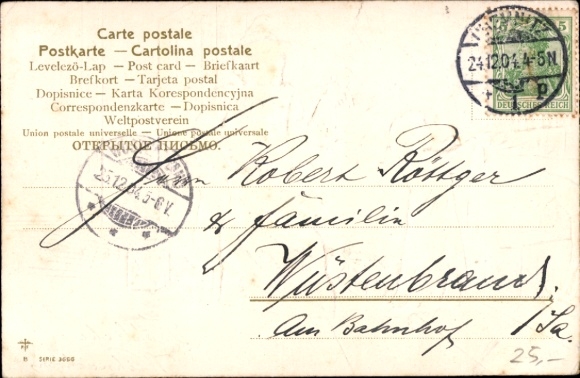 Carte postale
Postkarte — Cartolina postale
Levelezö-Lap — Post card — Briefkaart
Brefkort — Tarjeta postal
Dopisnice — Karta Korespondencyjna
Correspondenzkarte — Dopisnica
Weltpostverein
Union postale universelle — Unione postale universale
ОТКРЫТОЕ ПИСЬМО.
24.12.04. 4-5N.
p
5
DEUTSCHES REICH
25.12.04. 5-6V.
Herrn Robert Röttger
& Familie
Wüstenbrand
Am Bahnhof i/Sa.
SERIE 3066
25,-